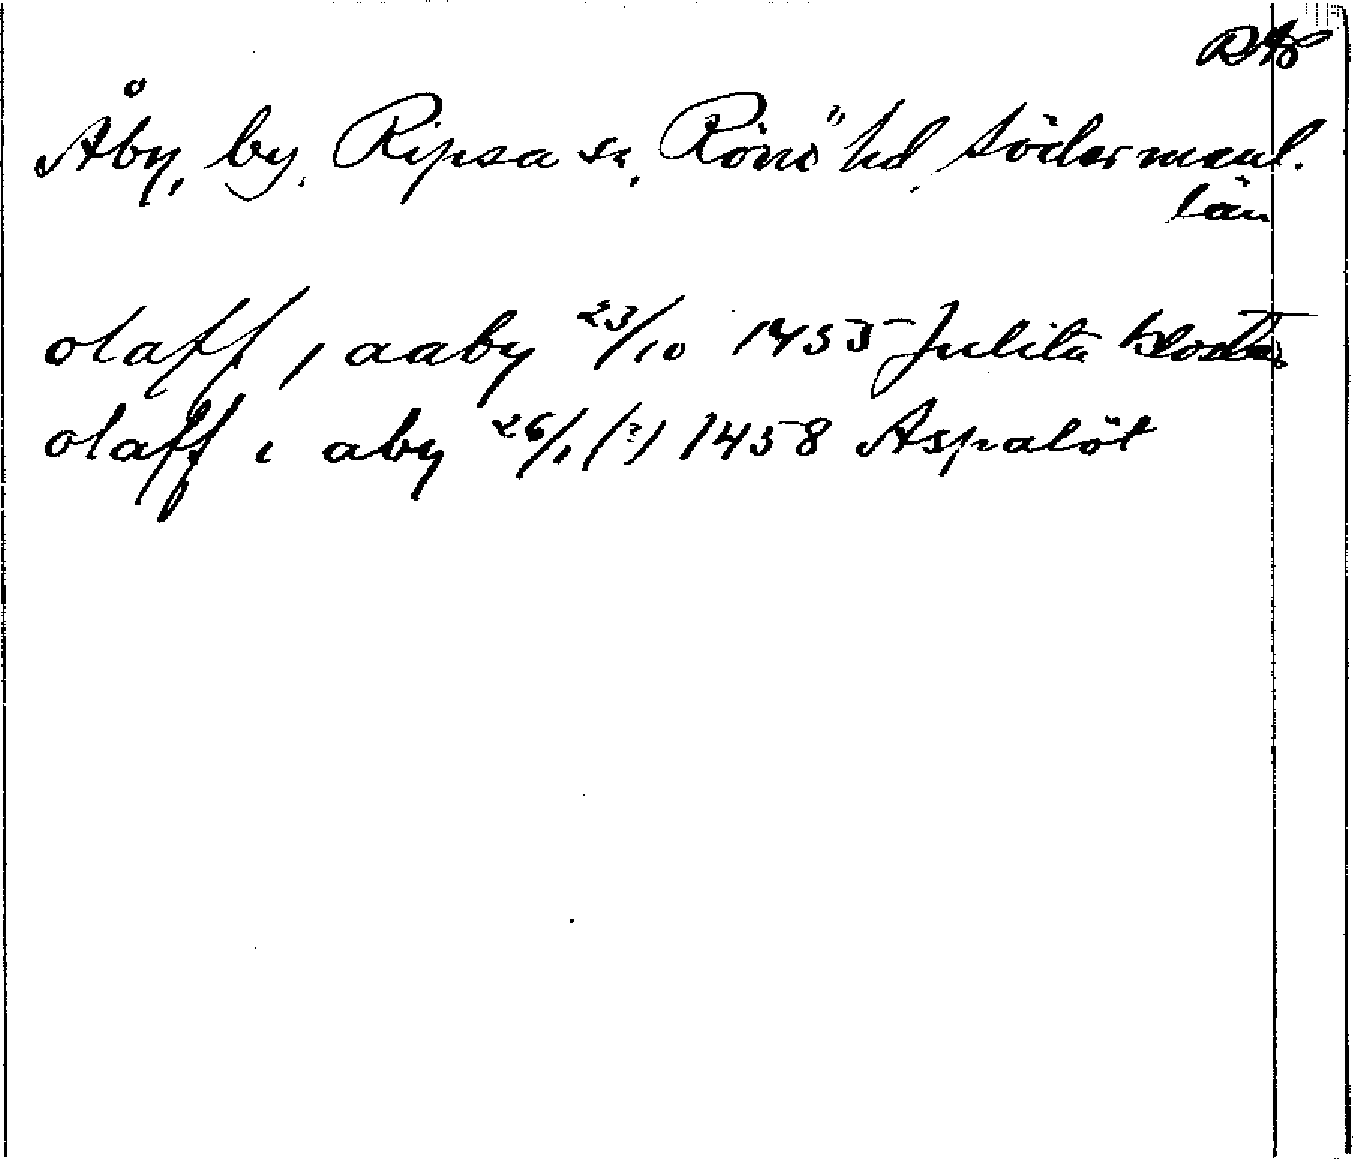 Åby, by, Ripsa sn, Rönö hd, Södermanl.
län
olaff i aaby 23/10 1455 Julita kloster
olaff i aby 26/1 (?) 1458 Aspalöt